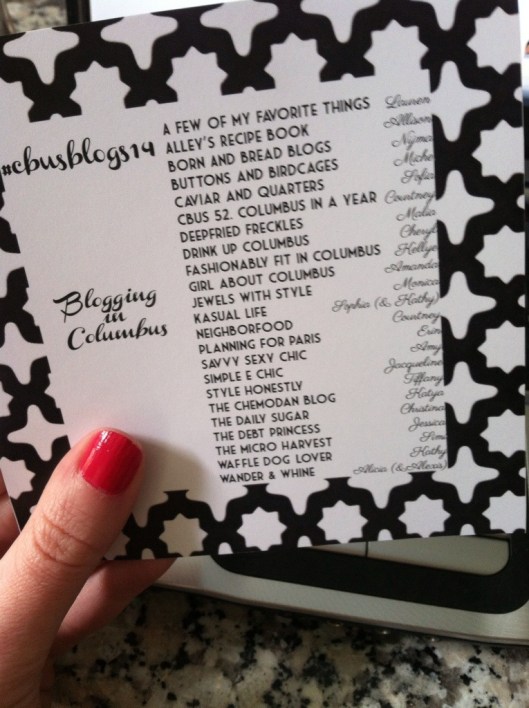 #cbusblogs14
A FEW OF MY FAVORITE THINGS Lauren
ALLEY'S RECIPE BOOK Allison
BORN AND BREAD BLOGS Nyma
BUTTONS AND BIRDCAGES Miche
CAVIAR AND QUARTERS Sofia
CBUS 52. COLUMBUS IN A YEAR Courtney
DEEPFRIED FRECKLES Malia
DRINK UP COLUMBUS Cheryl
FASHIONABLY FIT IN COLUMBUS Kellye
GIRL ABOUT COLUMBUS Amanda
JEWELS WITH STYLE Monica
KASUAL LIFE Sophia (& Kathy)
NEIGHBORFOOD Courtney
PLANNING FOR PARIS Erin
SAVVY SEXY CHIC Amy
SIMPLE E CHIC Jacqueline
STYLE HONESTLY Tiffany
THE CHEMODAN BLOG Katya
THE DAILY SUGAR Christina
THE DEBT PRINCESS Jessica
THE MICRO HARVEST
WAFFLE DOG LOVER Kathy
WANDER & WHINE Alicia (& Alexa)
Blogging
in
Columbus